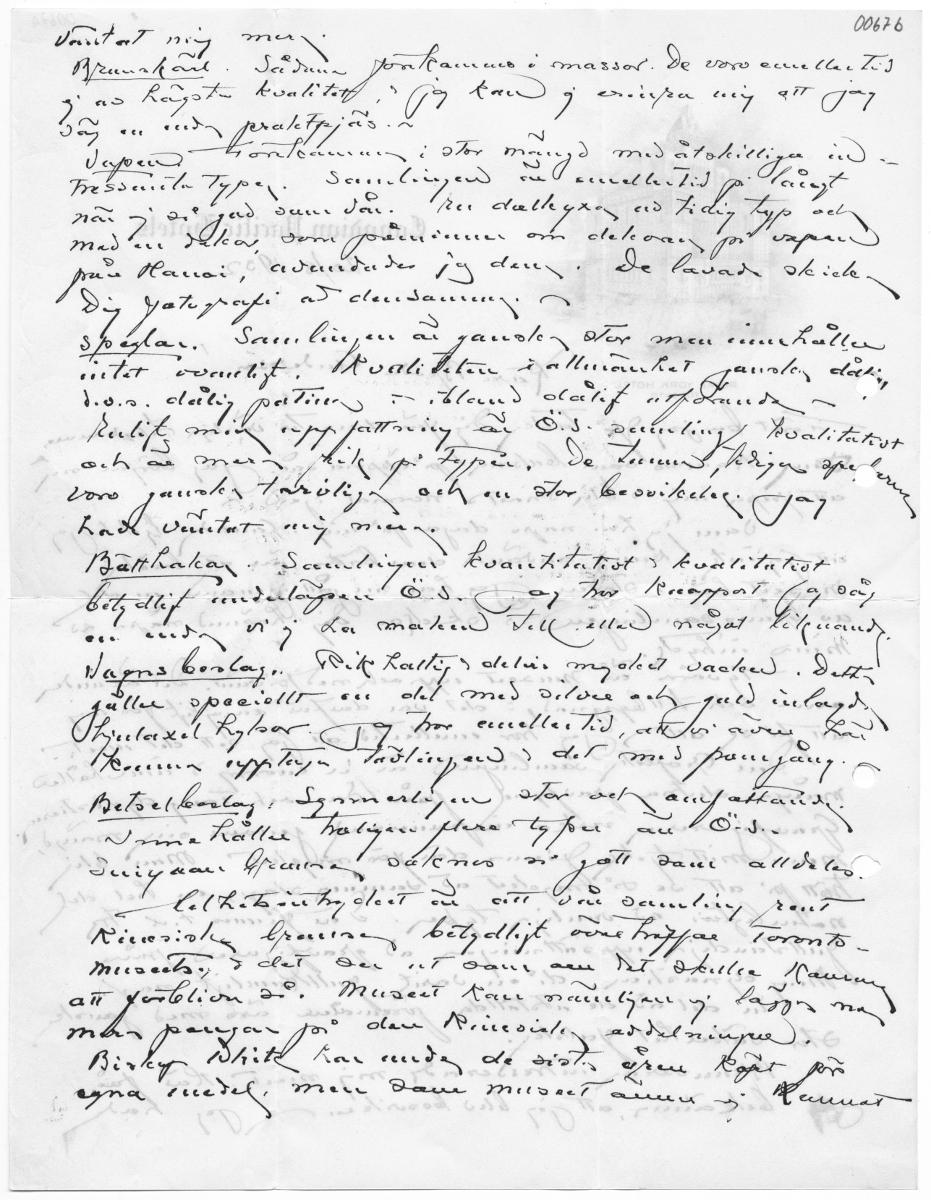 00676
väntat mig mer.
Bronskärl. Sådana förekommo i massor. De voro emellertid
ej av högsta kvalitet, & jag kan ej erinra mig att jag
såg en enda praktpjäs.~
Vapen förekommo i stor mängd med åtskilliga in-
tressanta typer. Samlingen är emellertid på långt
när ej så god som vår. En dolkyxa av tidig typ och
med en dekor, som påminner om dekoren på vapen
från Hanoi, avundades jag dem. De lovade skicka
Dig fotografi av densamma. ~
Speglar. Samlingen är ganska stor men innehåller
intet ovanligt. Kvaliteten i allmänhet ganska dålig,
d.v.s. dålig patina & ibland dåligt utförande ~
Enligt min uppfattning är Ö.S. samling kvalitativt
och är mera rik på typer. De tunna tidiga speglarna
voro ganska torftiga och en stor besvikelse. Jag
hade väntat mig mera.
Bälthakar. Samlingen kvantitativt & kvalitativt
betydligt underlägsen Ö.S. Jag tror knappast jag såg
en enda vi ej ha maken till eller något liknande.
Vagnsbeslag. Rikhaltig & delvis mycket vacker. Detta
gäller speciellt en del med silver och guld inlagda
hjulaxelhylsor. Jag tror emellertid, att vi även här
kunna upptaga tävlingen & det med framgång.
Betselbeslag. Synnerligen stor och omfattande.
Innehåller troligen flera typer än Ö.S.
Suiyuan bronser saknas så gott som alldeles.
Helhetsintrycket är att vår samling rent
kinesiska bronser betydligt överträffar Toronto-
museets, & det ser ut som om det skulle komma
att förbliva så. Museet kan nämligen ej lägga ned
mera pengar på den kinesiska avdelningen.
Biskop White har under de sista åren köpt för
egna medel, men som museet ännu ej kunnat